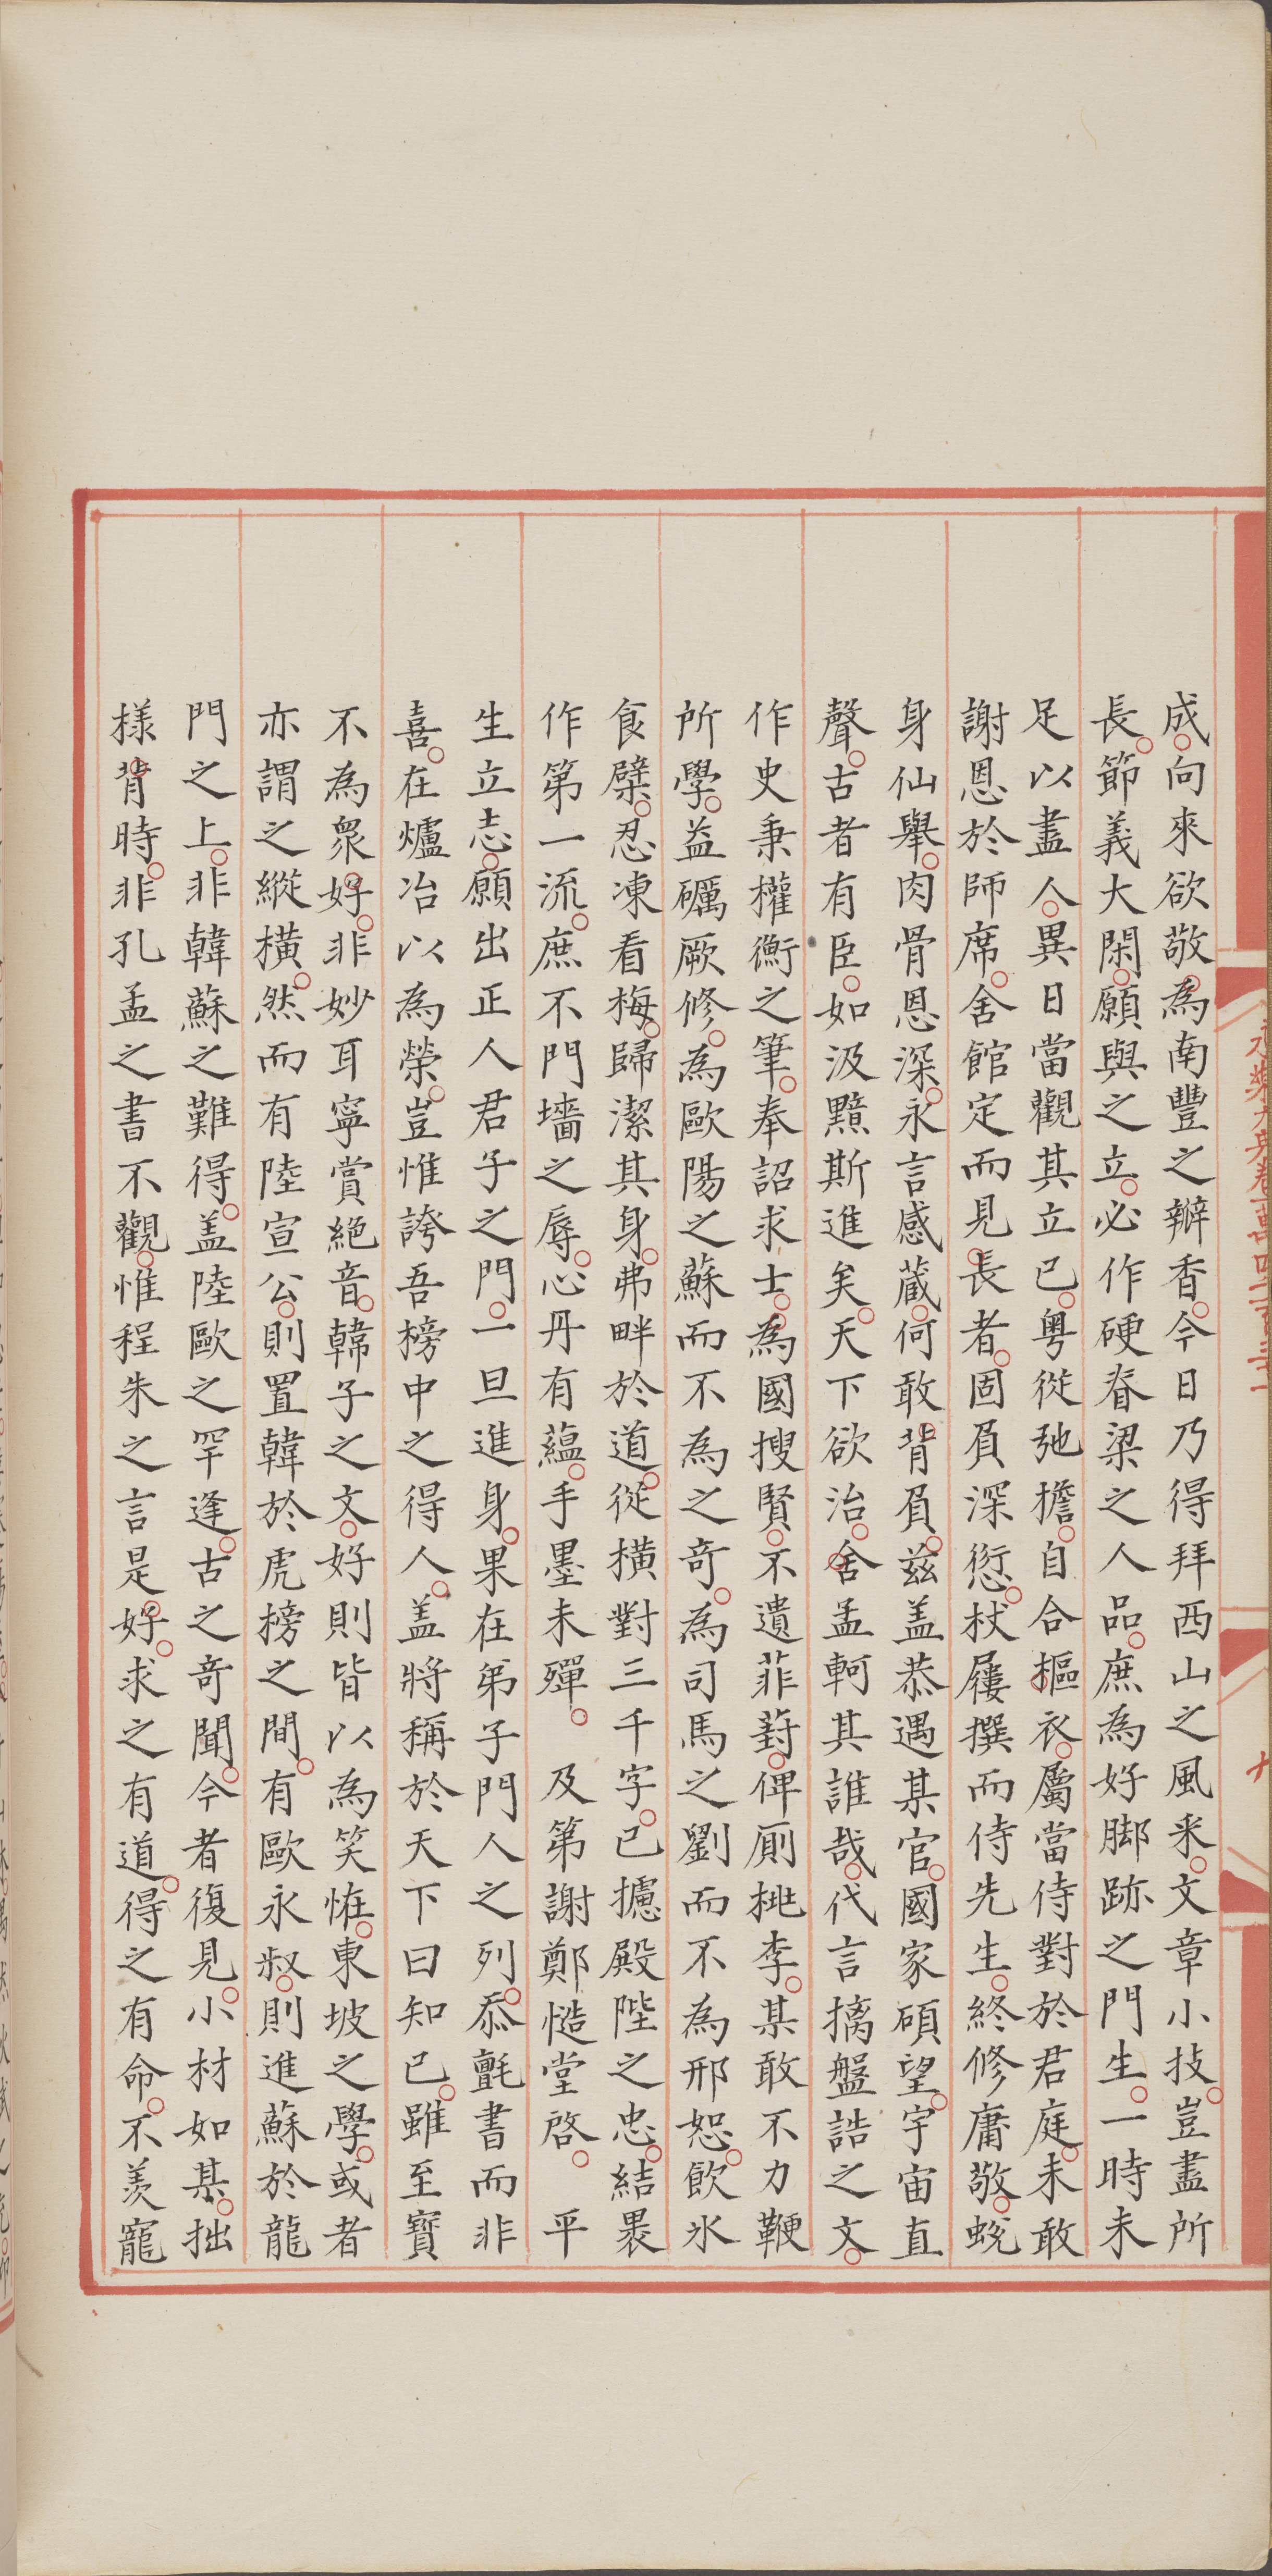 成向來欲敬為南豐之瓣香今日乃得拜西山之風采文章小技豈盡所
長節義大閑願與之立必作硬脊梁之人品庶為好脚跡之門生一時未
足以盡人異日當觀其立已粤從弛擔自合摳衣屬當侍對於君庭未敢
謝恩於師席舍館定而見長者固負深愆杖屨撰而侍先生終修庸敬蛻
身仙舉肉骨恩深永言感藏何敢背負兹盖恭遇某官國家碩望宇宙直
聲古者有臣如汲黯斯進矣天下欲治舍孟軻其誰哉代言摛盤誥之文
作史秉權衡之筆奉詔求士為國搜賢不遺菲葑俾厠桃李某敢不力鞭
所學益礪厥修為歐陽之蘇而不為之竒為司馬之劉而不為邢恕飲氷
食檗忍凍看梅歸潔其身弗畔於道從橫對三千字已攄殿陛之忠結褁
作第一流庶不門墻之辱心丹有蘊手墨未殫 及第謝鄭慥堂啓 平
生立志願出正人君子之門一旦進身果在弟子門人之列忝氈書而非
喜在爐冶以為榮豈惟誇吾榜中之得人盖將稱於天下曰知已雖至寳
不為衆好非妙耳寧賞絕音韓子之文好則皆以為笑恠東坡之學或者
亦謂之縱橫然而有陸宣公則置韓於虎榜之間有歐永叔則進蘇於龍
門之上非韓蘇之難得盖陸歐之罕逢古之竒聞今者復見小材如某拙
樣背時非孔孟之書不觀惟程朱之言是好求之有道得之有命不羡寵
永樂大典卷一萬四千一百三十一